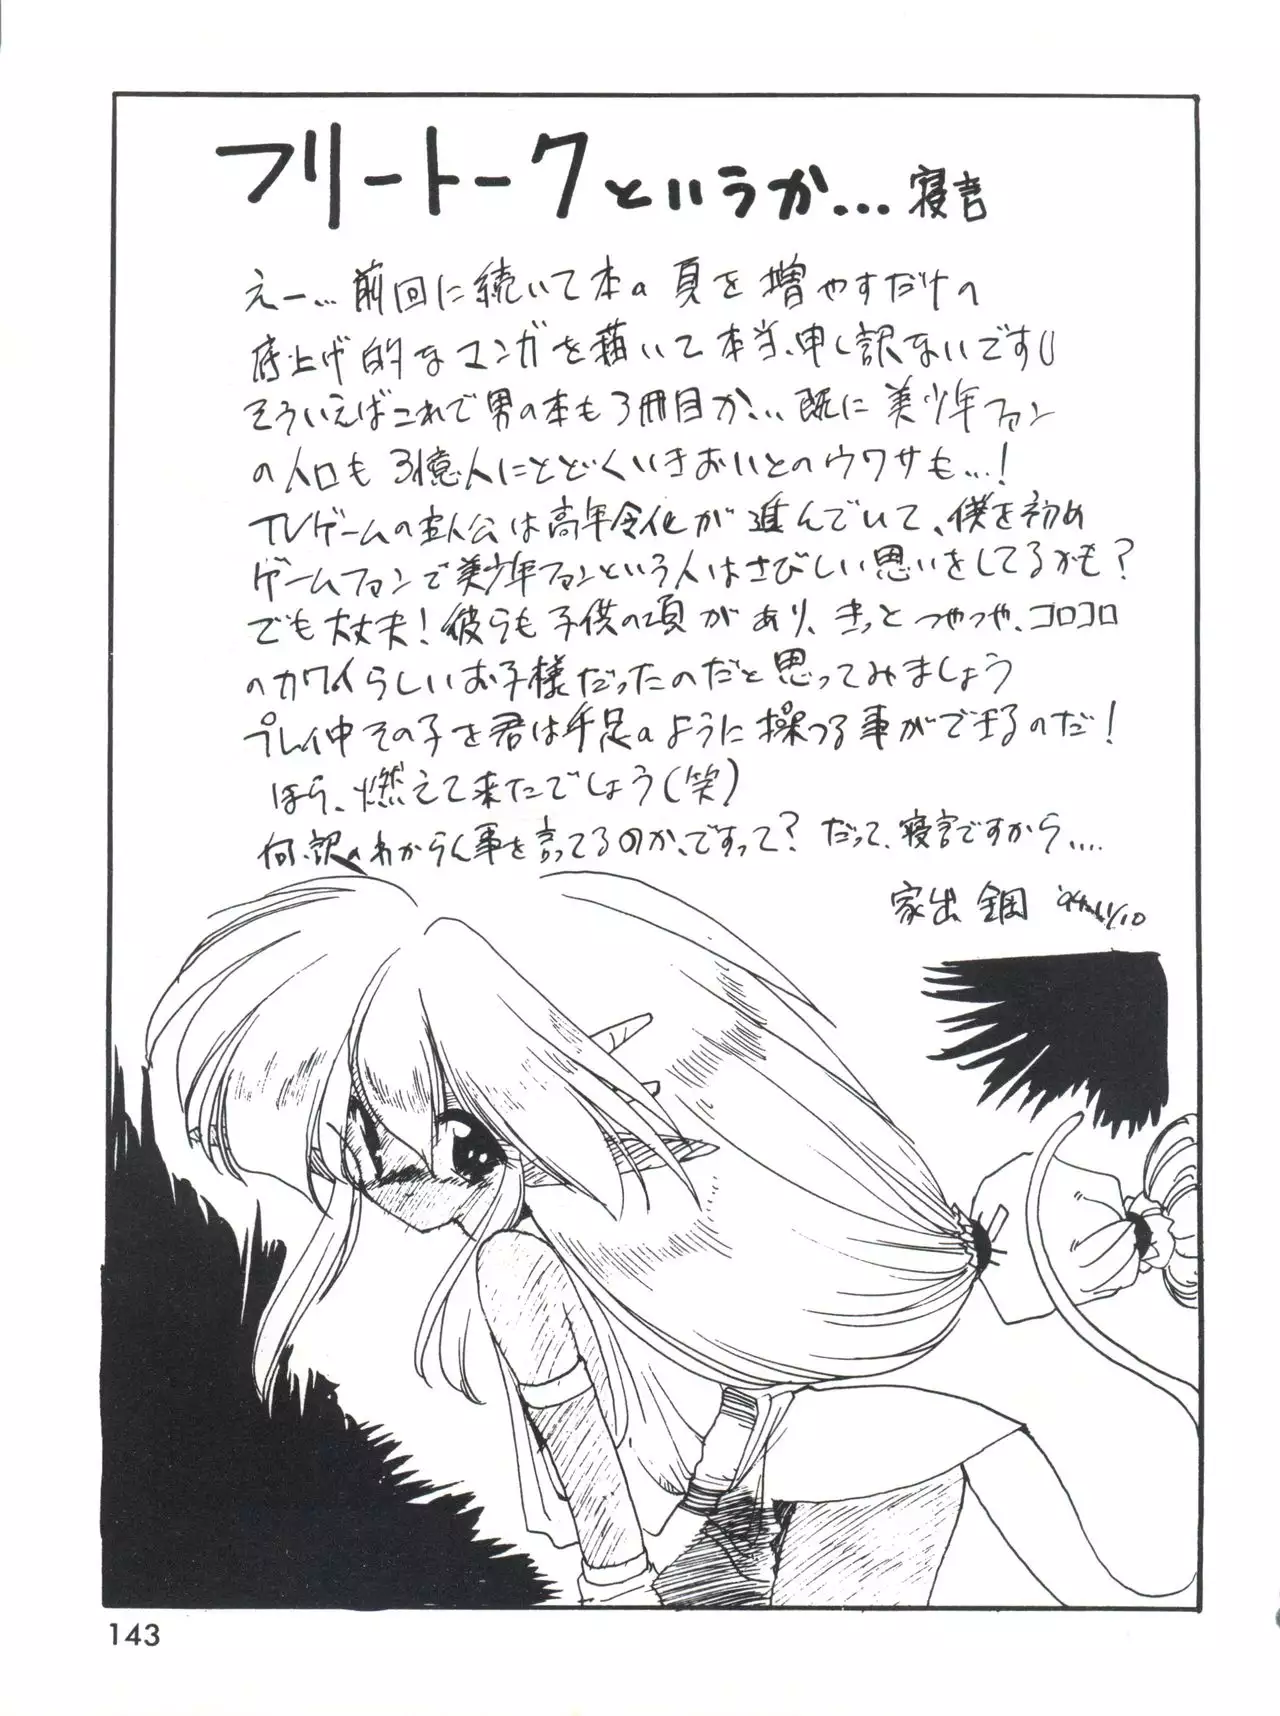 フリートークというか…寝言
えー…前回に続いて本の頁を増やすだけの
底上げ的なマンガを描いて本当、申し訳ないです
そういえばこれで男の本も3冊目か…既に美少年ファン
の人口も3億人にとどくいきおいとのウワサも…!
TVゲームの主人公は高年令化が進んでいて、僕を初め
ゲームファンで美少年ファンという人はさびしい思いをしてるかも?
でも大丈夫!彼らも子供の頃があり、きっとつやつや、コロコロ
のカワイらしいお子様だったのだと思ってみましょう
プレイ中その子を君は手足のように操つる事ができるのだ!
ほら、燃えて来たでしょう(笑)
何、訳のわからん事を言ってるのか、ですって?だって、寝言ですから….
家出 鋼 '94.11/10
143